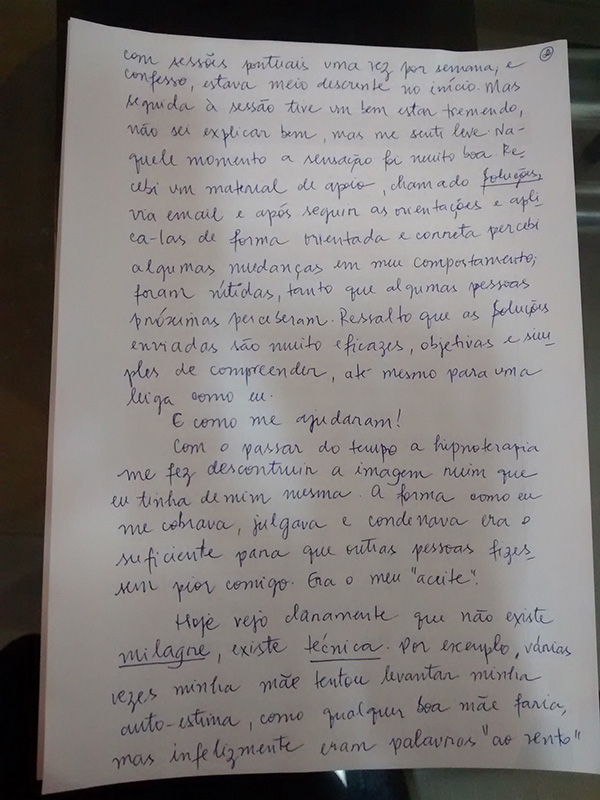 2
com sessões pontuais uma vez por semana, e
confesso, estava meio descrente no início. Mas
seguida à sessão tive um bem estar tremendo,
não sei explicar bem, mas me senti leve. Na-
quele momento a sensação foi muito boa. Re-
cebi um material de apoio, chamado Soluções,
via email e após seguir as orientações e apli
ca-las de forma orientada e correta percebi
algumas mudanças em meu comportamento;
foram nítidas, tanto que algumas pessoas
próximas perceberam. Ressalto que as Soluções
enviadas são muito eficazes, objetivas e sim
ples de compreender, até mesmo para uma
leiga como eu.
E como me ajudaram!
Com o passar do tempo a hipnoterapia
me fez descontruir a imagem ruim que
eu tinha de mim mesma. A forma como eu
me cobrava, julgava e condenava era o
suficiente para que outras pessoas fizes
sem pior comigo. Era o meu "aceite".
Hoje vejo claramente que não existe
milagre, existe técnica. Por exemplo, várias
vezes minha mãe tentou levantar minha
auto-estima, como qualquer boa mãe faria,
mas infelizmente eram palavras "ao vento"